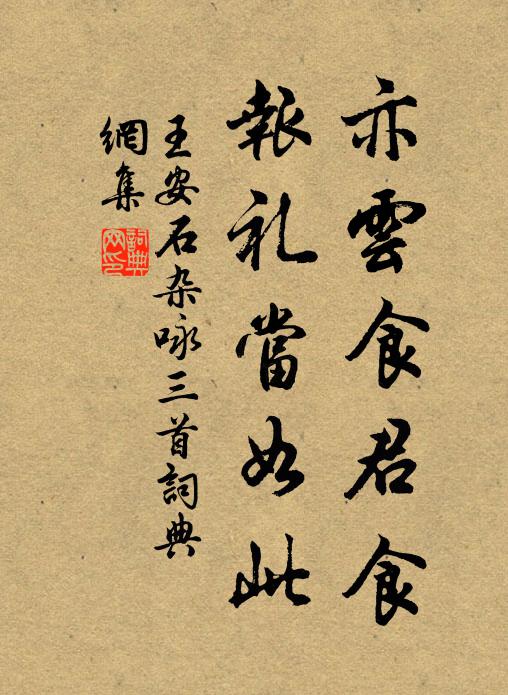 亦雲食君食
報礼當如此
王安石杂咏三首詞典
網集
詞典
网印